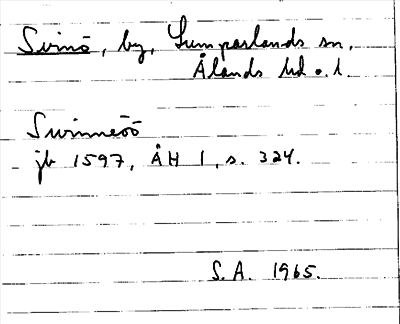 Svinö, by, Lumparlands sn,
Ålands hd o. l.
Svinneöö
jb 1597, ÅH 1, s. 324.
S.A. 1965.